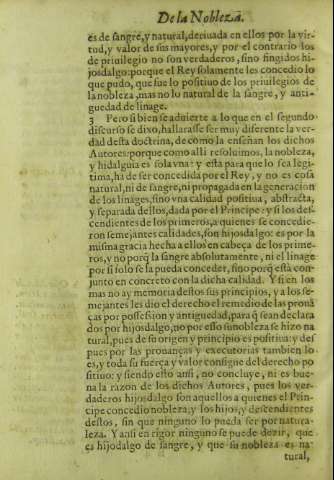 De la Nobleza.
es de sangre, y natural, deriuada en ellos por la vir-
tud, y valor de sus mayores, y por el contrario los
de priuilegio no son verdaderos, sino fingidos hi-
josdalgo: porque el Rey solamente les concedio lo
que pudo, que fue lo positiuo de los priuilegios de
la nobleza, mas no lo natural de la sangre, y anti-
guedad de linage.
3 Pero si bien se aduierte a lo que en el segundo
discurso se dixo, hallarase ser muy diferente la ver-
dad desta doctrina, de como la enseñan los dichos
Autores: porque como alli resoluimos, la nobleza,
y hidalguia es sola vna: y esta para que lo sea legi-
tima, ha de ser concedida por el Rey, y no es cosa
natural, ni de sangre, ni propagada en la generacion
de los linages, sino vna calidad positiua, abstracta,
y separada dellos, dada por el Principe: y si los des-
cendientes de los primeros, a quienes se concedie-
ron semejantes calidades, son hijosdalgo: es por la
misma gracia hecha a ellos en cabeça de los prime-
ros, y no porq̃ la sangre absolutamente, ni el linage
por si solo se la pueda conceder, sino porq̃ està con-
junto en concreto con la dicha calidad. Y si en los
mas no ay memoria destos sus principios, y a los se-
mejantes les dio el derecho el remedio de las prouã
ças por possession y antiguedad, para q̃ sean declara
dos por hijosdalgo, no por esso su nobleza se hizo na
tural, pues de su origen y principio es positiua: y des
pues por las prouanças y executorias tambien lo
es, y toda su fuerça y valor consigue del derecho po
sitiuo: y siendo esto ansi, no concluye, ni es bue-
na la razon de los dichos Autores, pues los ver-
daderos hijosdalgo son aquellos a quienes el Prin-
cipe concedio nobleza, y los hijos, y descendientes
destos, sin que ninguno lo pueda ser por natura-
leza. Y ansi en rigor ninguno se puede dezir, que
es hijodalgo de sangre, y que su nobleza es na-
tural,